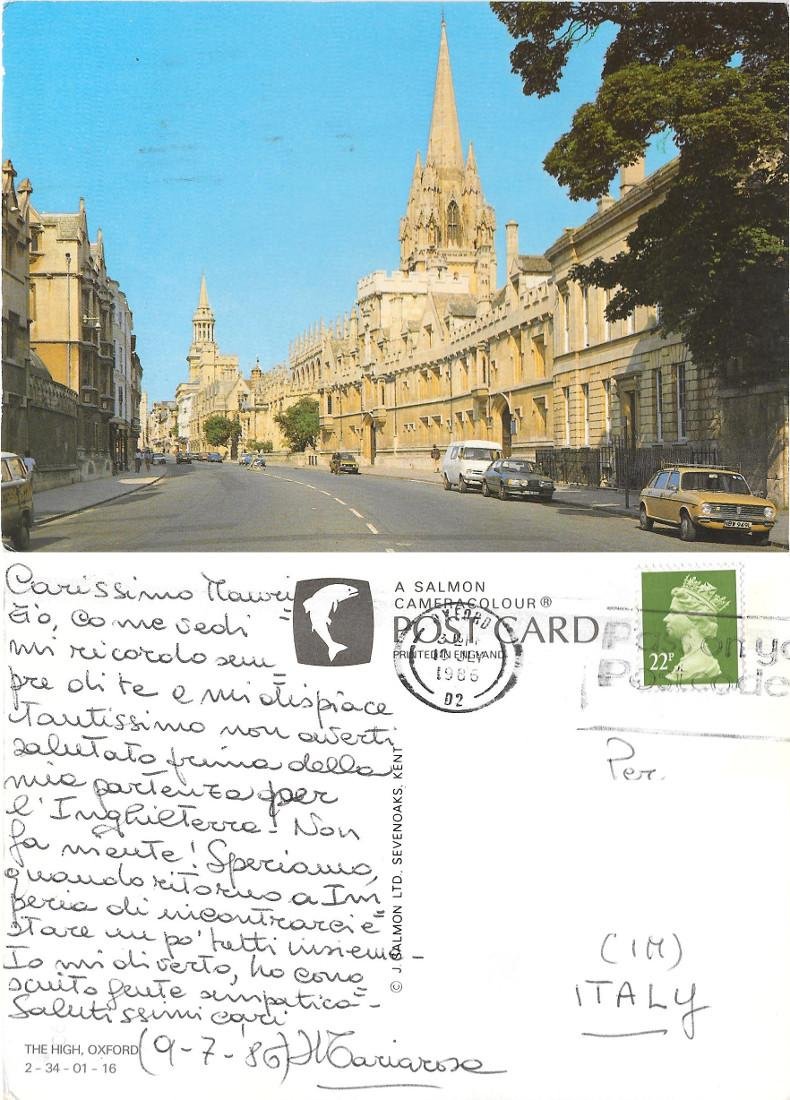 Carissimo Mauri=
zio, come vedi
mi ricordo sem=
pre di te e mi dispiace
tantissimo non averti
salutato prima della
mia partenza per
l'Inghilterra. Non
fa niente! Speriamo,
quando ritorno a Im=
peria di incontrarci e
stare un po' tutti insieme-
Io mi diverto, ho cono=
sciuto gente simpatica-
Salutissimi cari
(9-7-86) Mariarosa
THE HIGH, OXFORD
2-34-01-16
A SALMON
CAMERACOLOUR®
POST CARD
PRINTED IN ENGLAND
© J. SALMON LTD., SEVENOAKS, KENT
1986
D2
22P
Pass on yo
Postcode
Per.
(IM)
ITALY